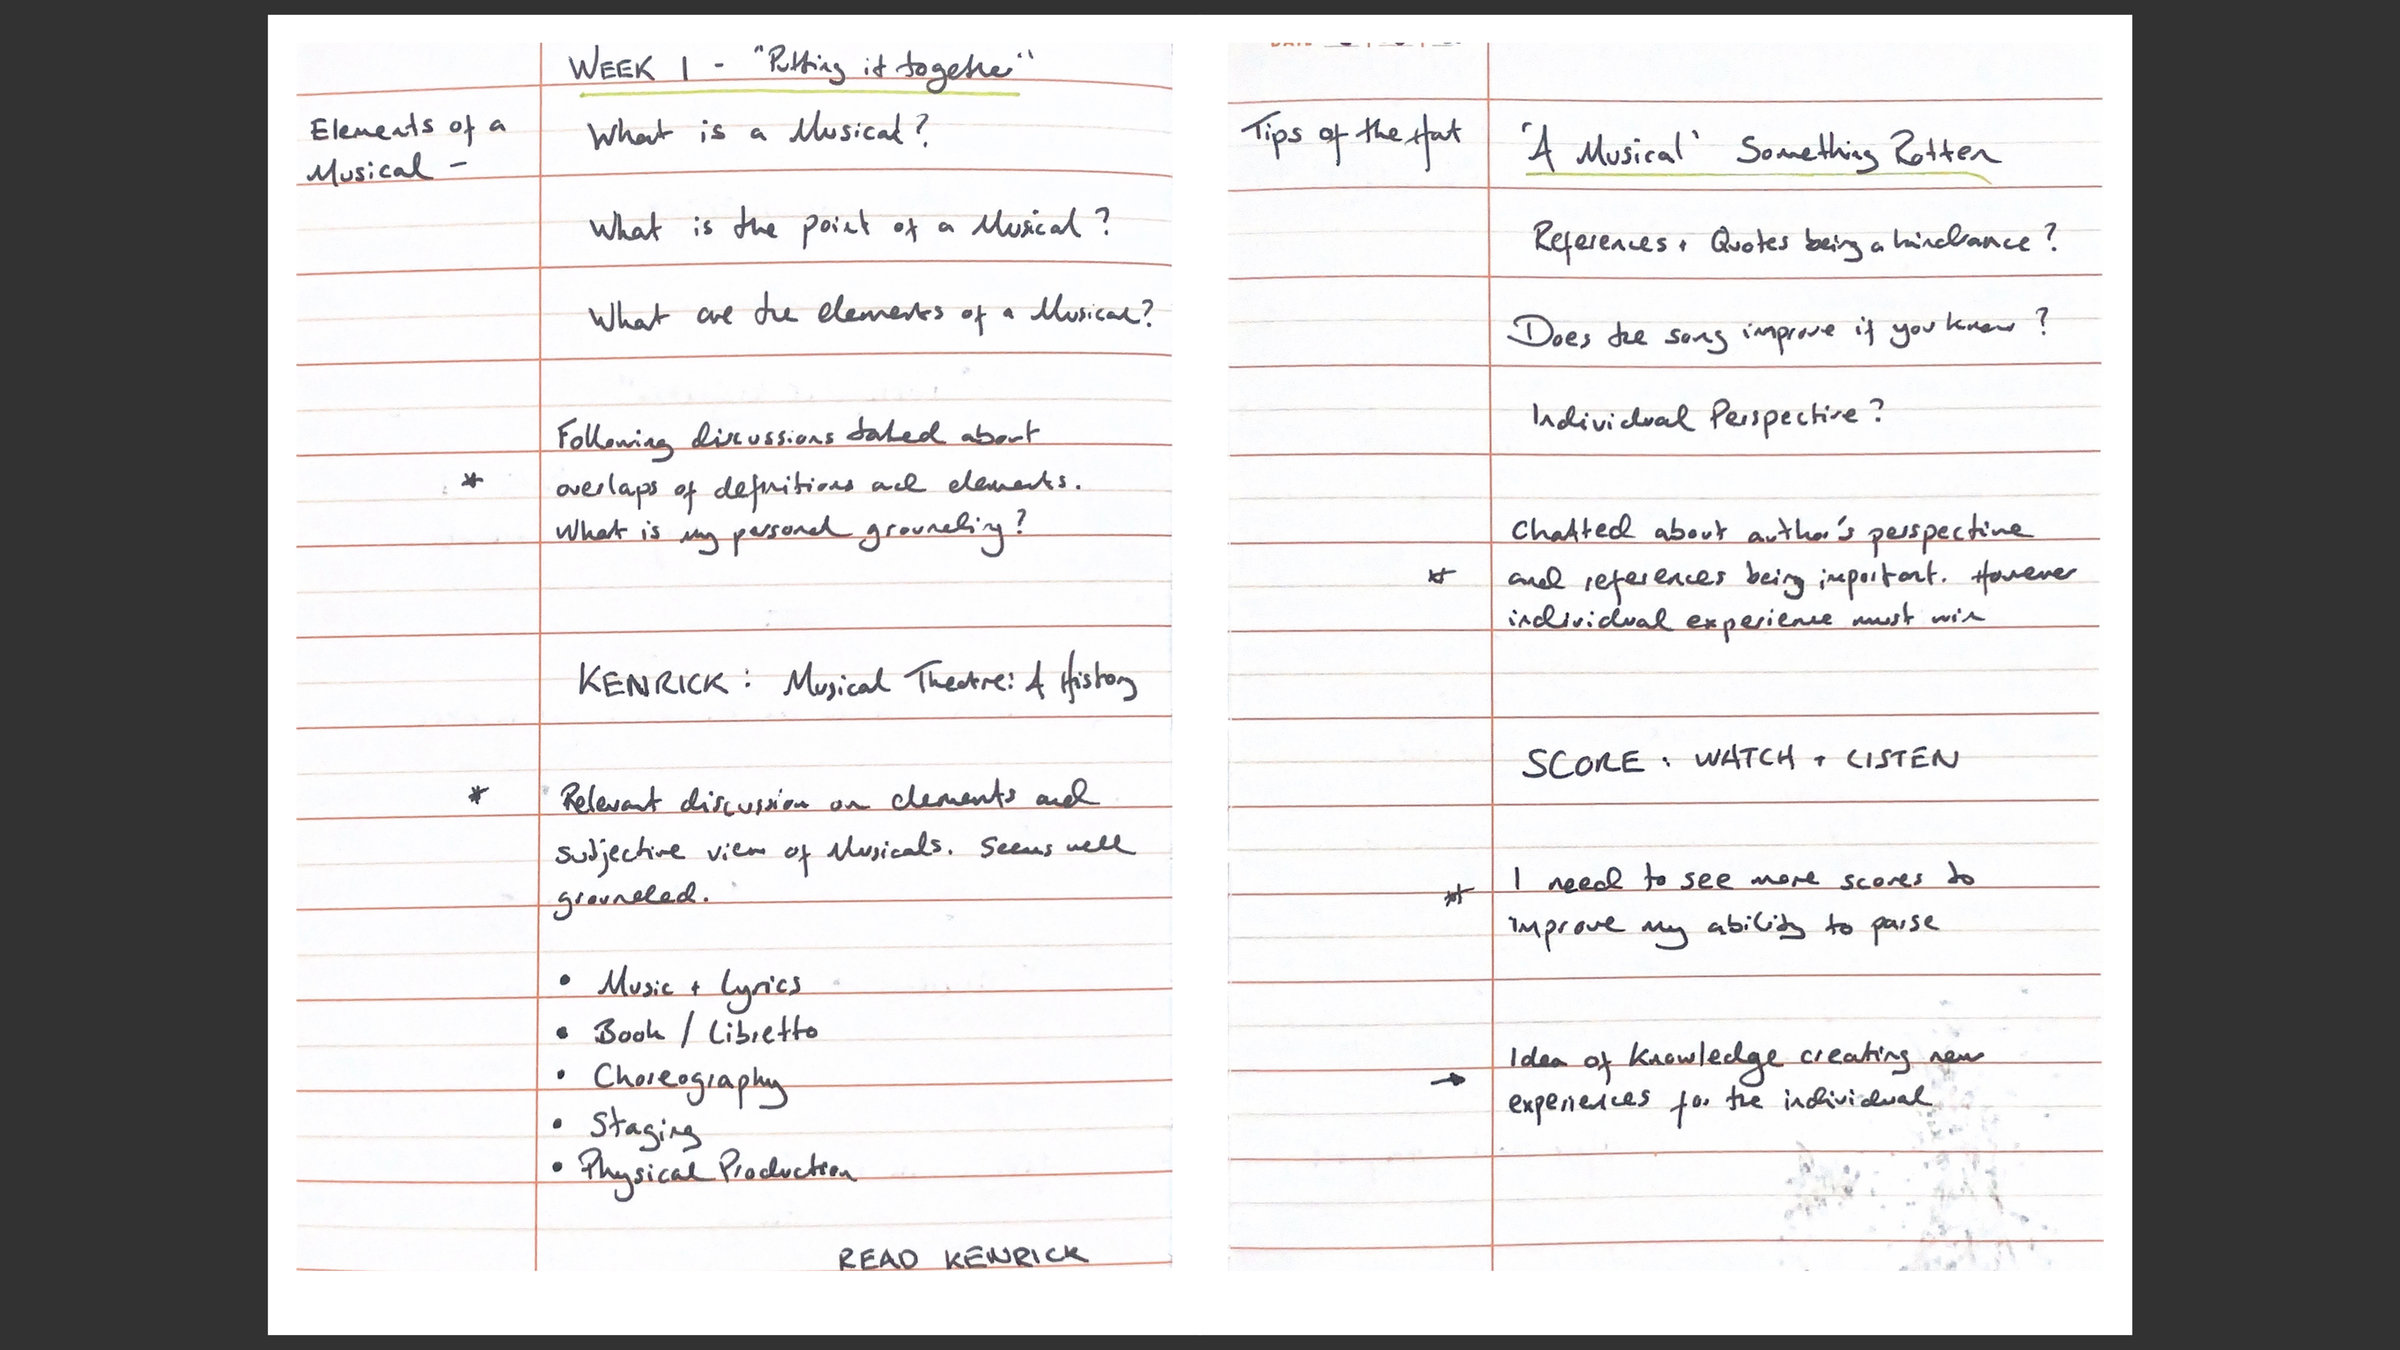 WEEK 1 - "Putting it together"
Elements of a
Musical -
What is a Musical?
What is the point of a Musical?
What are the elements of a Musical?
Following discussions talked about
* overlaps of definitions and elements.
What is my personal grounding?
KENRICK: Musical Theatre: A History
* Relevant discussion on elements and
subjective view of Musicals. Seems well
grounded.
• Music + Lyrics
• Book / Libretto
• Choreography
• Staging
• Physical Production
READ KENRICK
Tips of the Hat
'A Musical' Something Rotten
References + Quotes being a hindrance?
Does the song improve if you know?
Individual Perspective?
Chatted about author's perspective
* and references being important. However
individual experience must win
SCORE: WATCH + LISTEN
* I need to see more scores to
improve my ability to parse
→ Idea of knowledge creating new
experiences for the individual